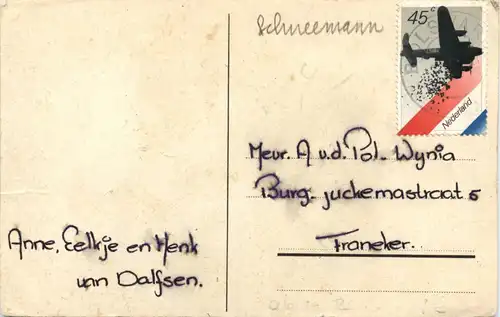 Schneemann
45c
Nederland
Mevr. A v.d. Pol-Wynia
Burg. juckemastraat 5
Franeker.
Anne, Eelkje en Henk
van Dalfsen.